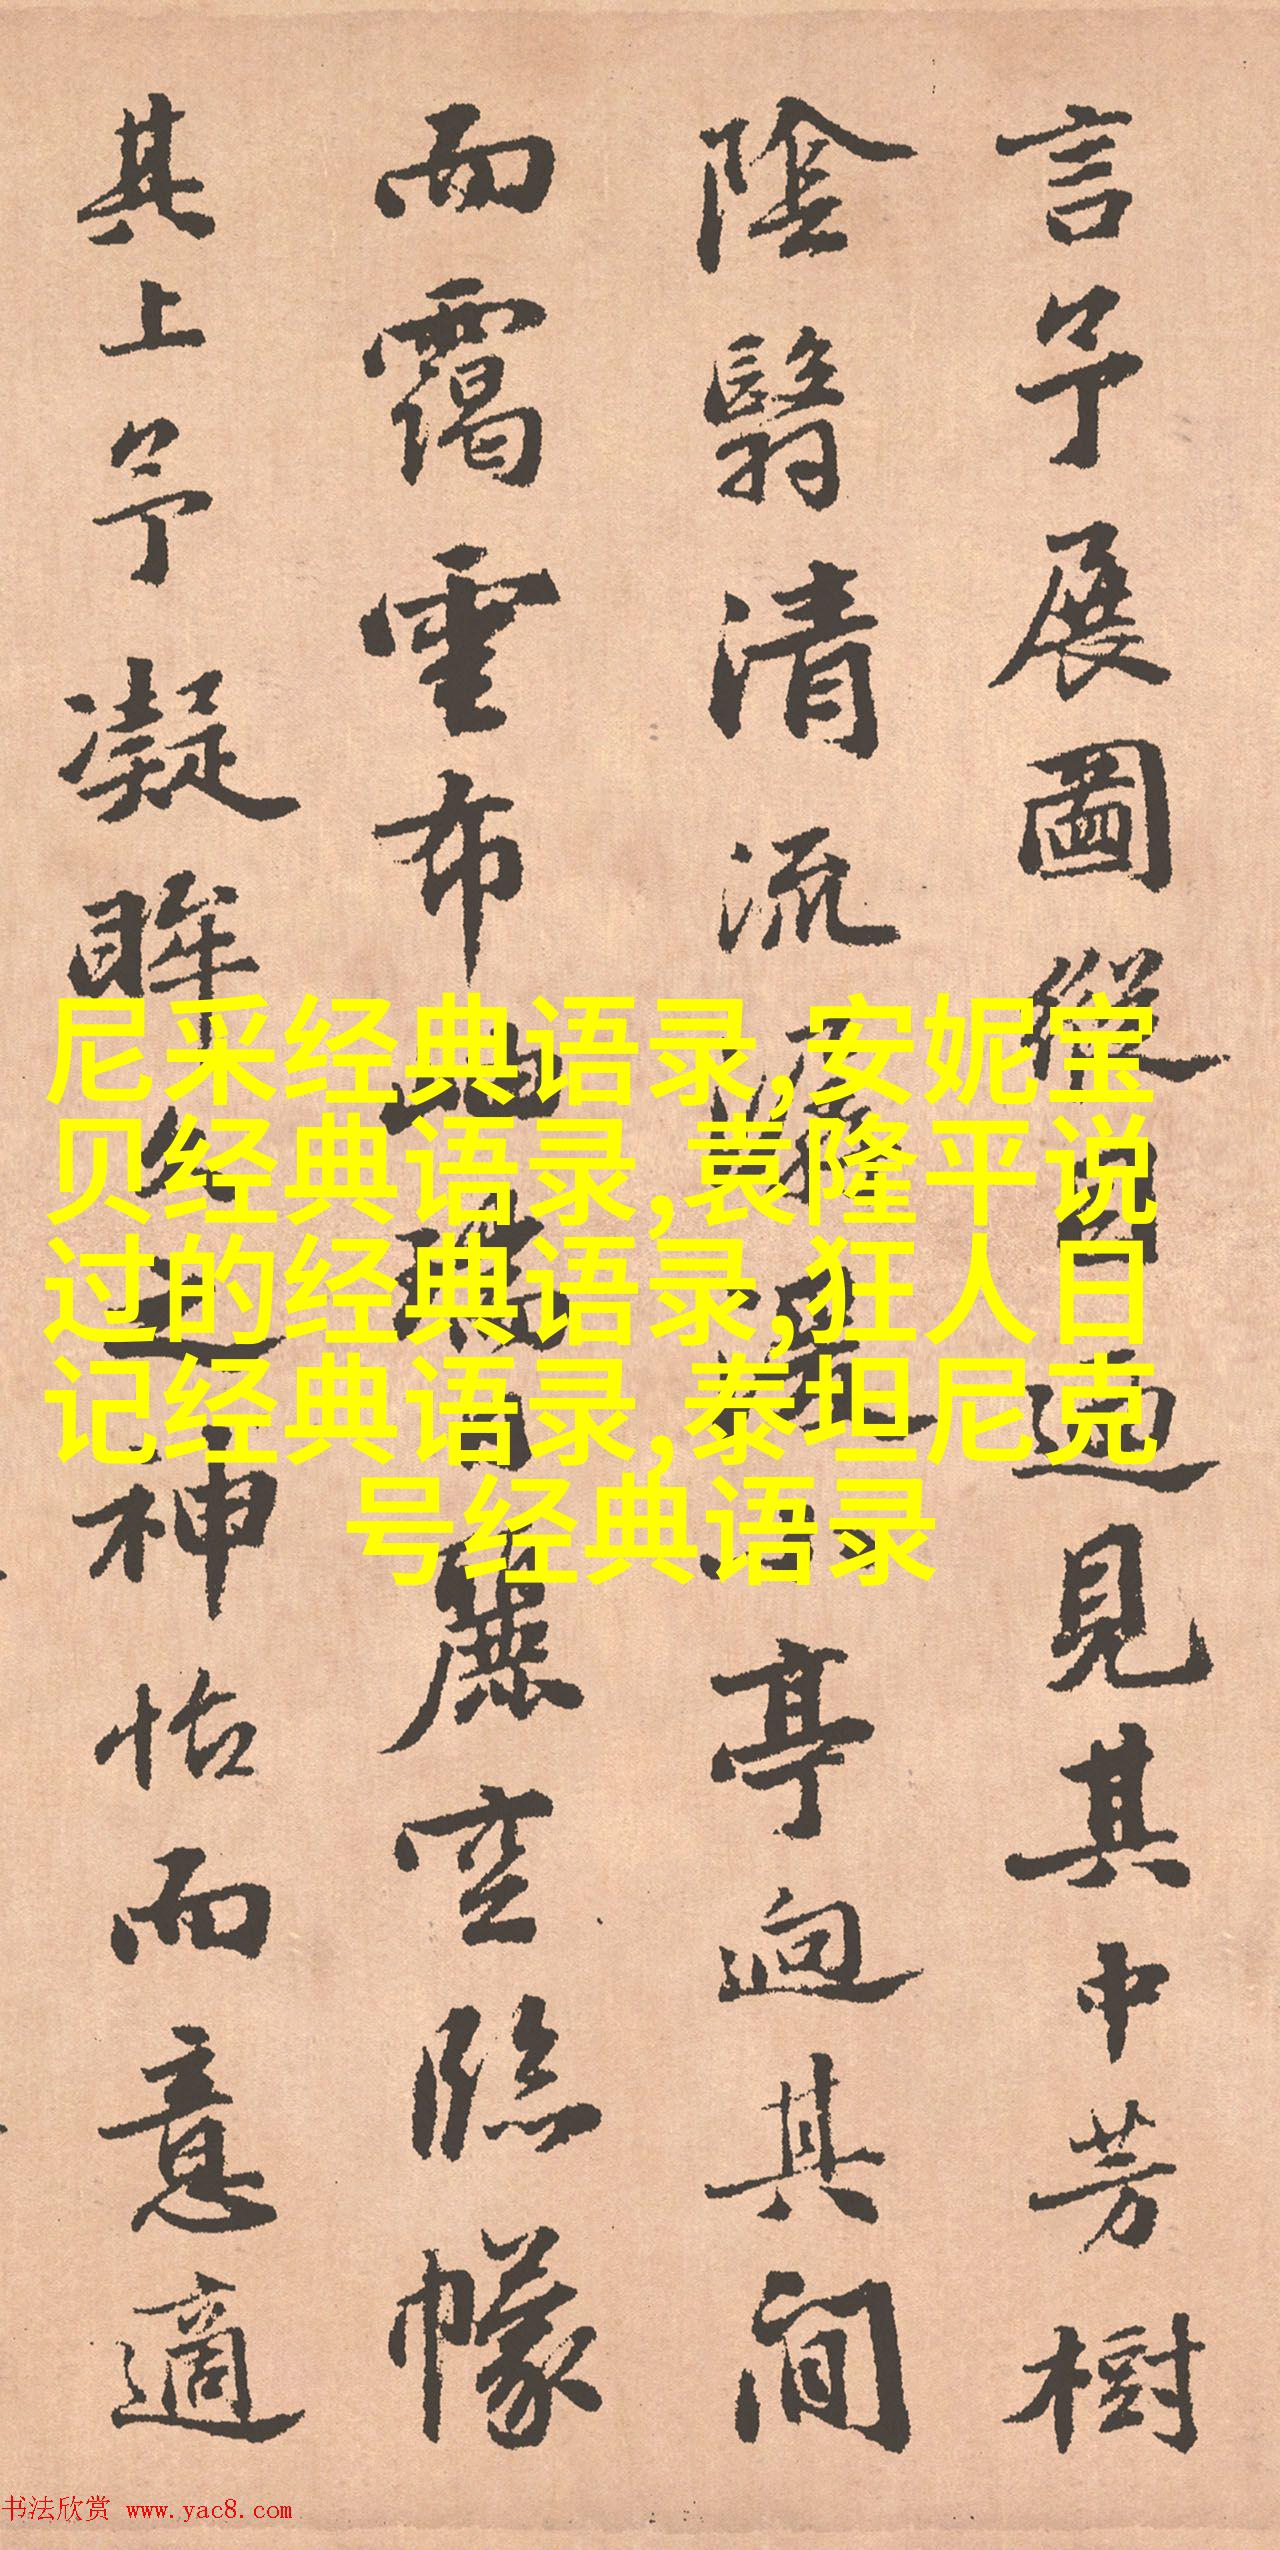 言予展圖縱目迥見其中芳樹
陰翳清流亭迥其間
而靄雲布麗空臨幪
其上予凝眸久之神怡而意適
尼采经典语录,安妮宝
贝经典语录,袁隆平说
过的经典语录,狂人日
记经典语录,泰坦尼克
号经典语录
书法欣赏 www.yac8.com